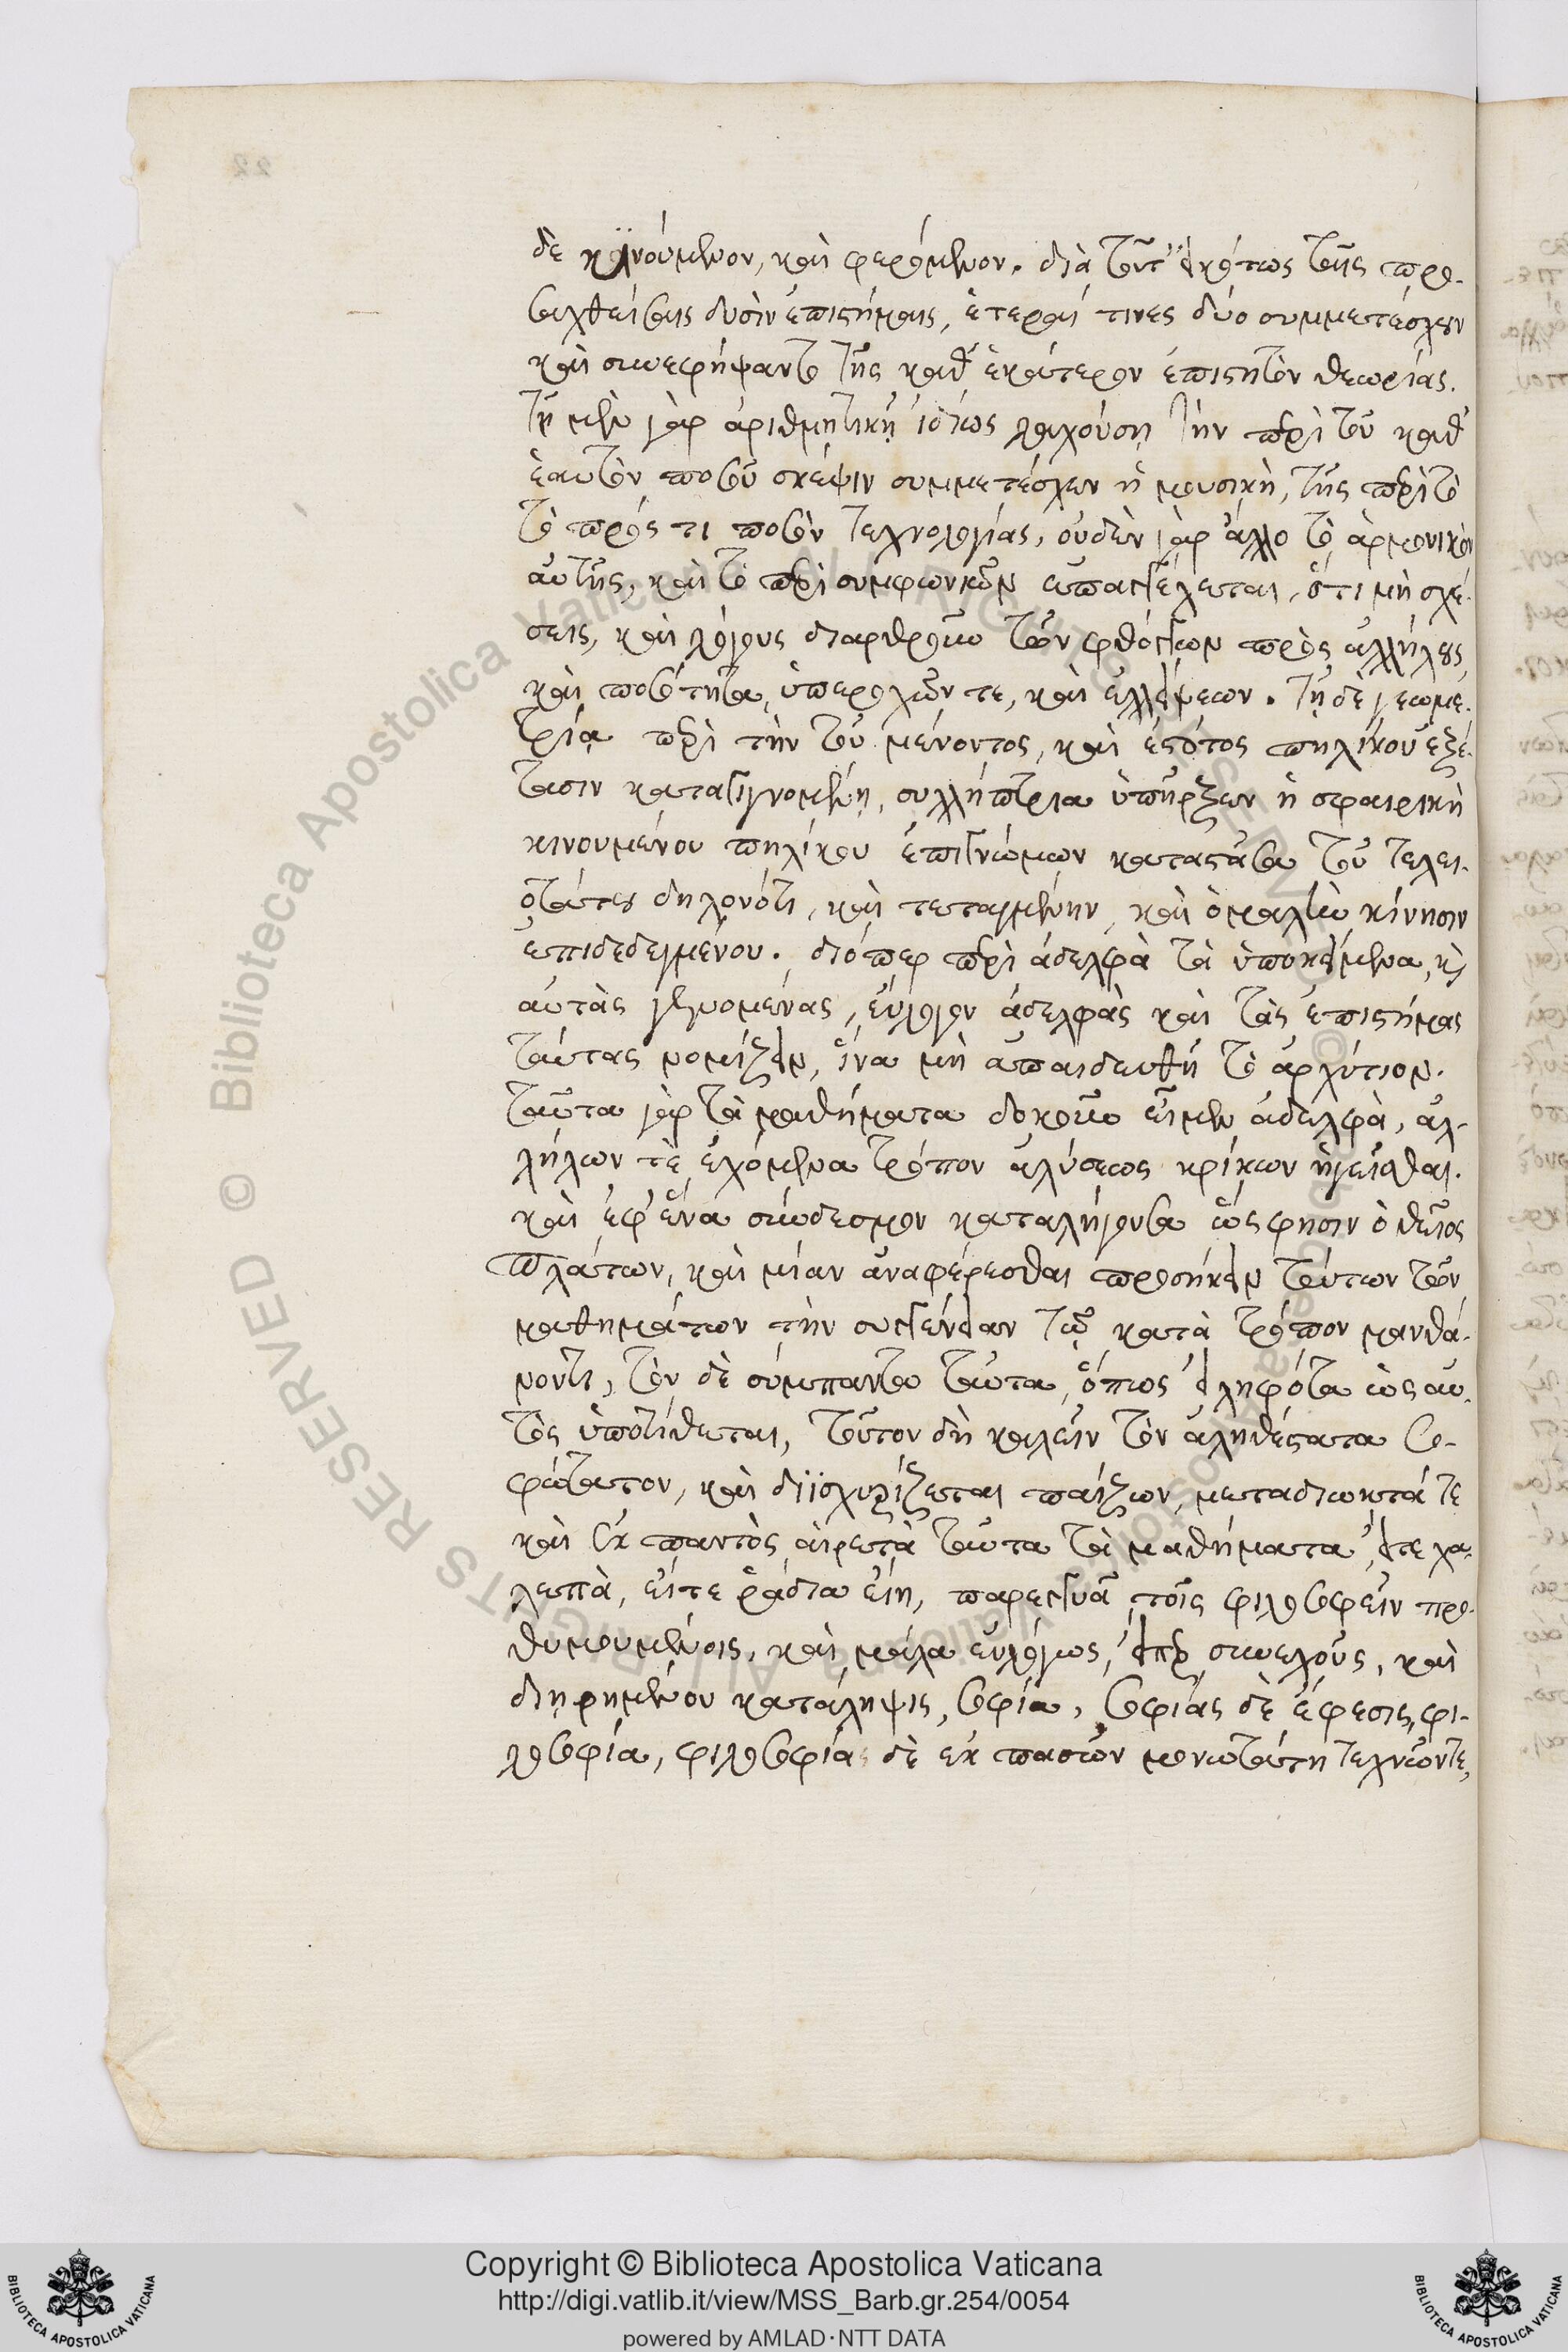 δὲ κινούμενον, καὶ φερόμενον. διὰ τοῦτ' εἰκότως ταῖς προ-
ταχθείσαις δυσὶν ἐπιστήμαις, ἕτεραί τινες δύο συμμετέσχον
καὶ συνεφήψαντο τῆς καθ' ἑκάτερον ἐπιστητὸν θεωρίας.
τῇ μὲν γὰρ ἀριθμητικῇ ἰδίως λαχούσῃ τὴν περὶ τοῦ καθ'
ἑαυτὸν ποσοῦ σκέψιν συμμετέσχεν ἡ μουσικὴ, τῆς περὶ τὸ
τὸ πρός τι ποσὸν τεχνολογίας, οὐδὲν γὰρ ἄλλο τὸ ἁρμονικὸν
αὐτῆς, καὶ τὸ περὶ συμφωνιῶν ἐπαγγέλεται, ὅτι μὴ σχέ-
σεις, καὶ λόγους διαρθροῦν τῶν φθόγγων πρὸς ἀλλήλους
καὶ ποσότητα, ὑπεροχῶν τε, καὶ ἐλλείψεων. τῇ δὲ γεωμε-
τρίᾳ περὶ τὴν τοῦ μένοντος, καὶ ἑστῶτος πηλίκου ἐξέ-
τασιν καταγιγνομένῃ, συλλήπτρια ὑπῆρξεν ἡ σφαιρικὴ
κινουμένου πηλίκου ἐπιγνώμων καταστᾶσα τοῦ τελει-
οτάτου δηλονότι, καὶ τεταγμένην, καὶ ὁμαλὴν κίνησιν
ἐπιδεδειγμένου. διόπερ περὶ ἀδελφὰ τὰ ὑποκείμενα, κὶ
αὐτὰς γενομένας, εὔλογον ἀδελφὰς καὶ τὰς ἐπιστήμας
ταύτας νομίζειν, ἵνα μὴ ἀπαιδευθῇ τὸ ἀρχύτιον.
ταῦτα γὰρ τὰ μαθήματα δοκοῦν εἶμεν ἀδελφὰ, ἀλ-
λήλων τὲ ἐχόμενα τρόπον ἁλύσεως κρίκων ἡγεῖσθαι.
καὶ ἐφ' ἕνα σύνδεσμον καταλήγοντα ὥς φησιν ὁ θεῖος
Πλάτων, καὶ μίαν ἀναφέρεσθαι προσήκειν τούτων τῶν
μαθημάτων τὴν συγγένειαν τῷ κατὰ τρόπον μανθά-
νοντι, τὸν δὲ σύμπαντα ταῦτα, ὅπως εἰληφότα ὡς αὐ-
τὸς ὑποτίθεται, τοῦτον δὴ καλεῖν τὸν ἀληθέστατα σο-
φώτατον, καὶ διϊσχυρίζεται παίζων, μεταδιωκτά τε
καὶ ἐκ παντὸς αἱρετὰ ταῦτα τὰ μαθήματα, εἴτε χα-
λεπὰ, εἴτε ῥάδια εἴη, παρεγγυᾶ τοῖς φιλοσοφεῖν προ-
θυμουμένοις, καὶ μάλα εὐλόγως, εἴπερ συνεχοῦς, καὶ
διῃρημένου κατάληψις, σοφία, σοφίας δὲ ἔφεσις, φι-
λοσοφία, φιλοσοφία δὲ ἐκ πασῶν μονωτάτη τεχνῶντε,
22
Copyright © Biblioteca Apostolica Vaticana
http://digi.vatlib.it/view/MSS_Barb.gr.254/0054
powered by AMLAD·NTT DATA
BIBLIOTECA APOSTOLICA VATICANA
BIBLIOTECA APOSTOLICA VATICANA